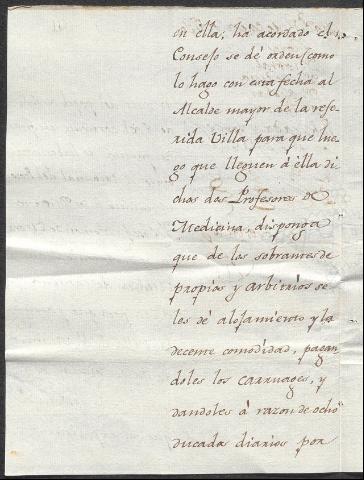 en ella; há acordado el
Consejo se dé orden (como
lo hago con esta fecha al
Alcalde mayor de la refe
rida Villa para que lue
go que lleguen á ella di
chos dos Profesores de
Medicina, disponga
que de los sobrantes de
propios y arbitrios se
les dé alojamiento y la
decente comodidad, pagan
doles los carruages, y
dandoles á razon de ocho
ducados diarios por